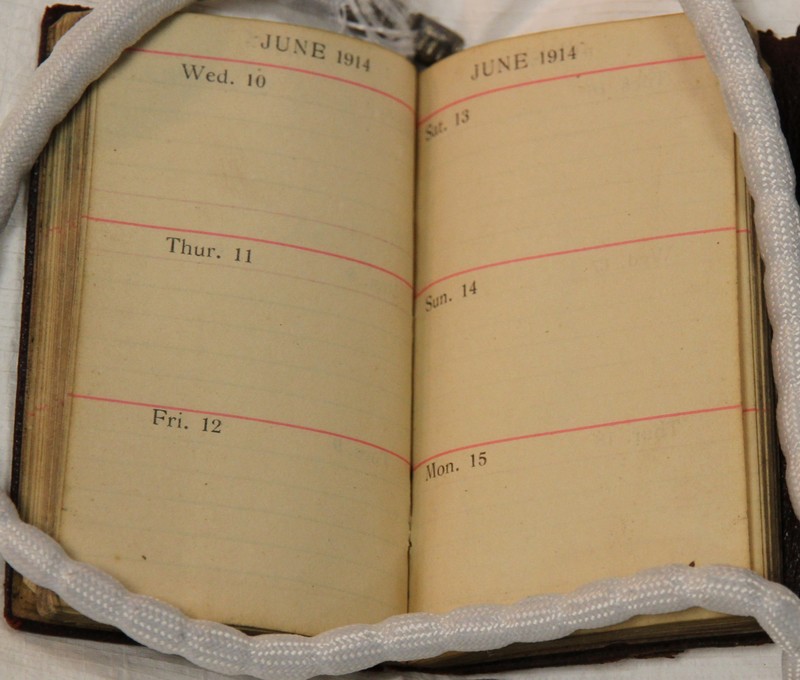 JUNE 1914
Wed. 10
Thur. 11
Fri. 12
JUNE 1914
Sat. 13
Sun. 14
Mon. 15